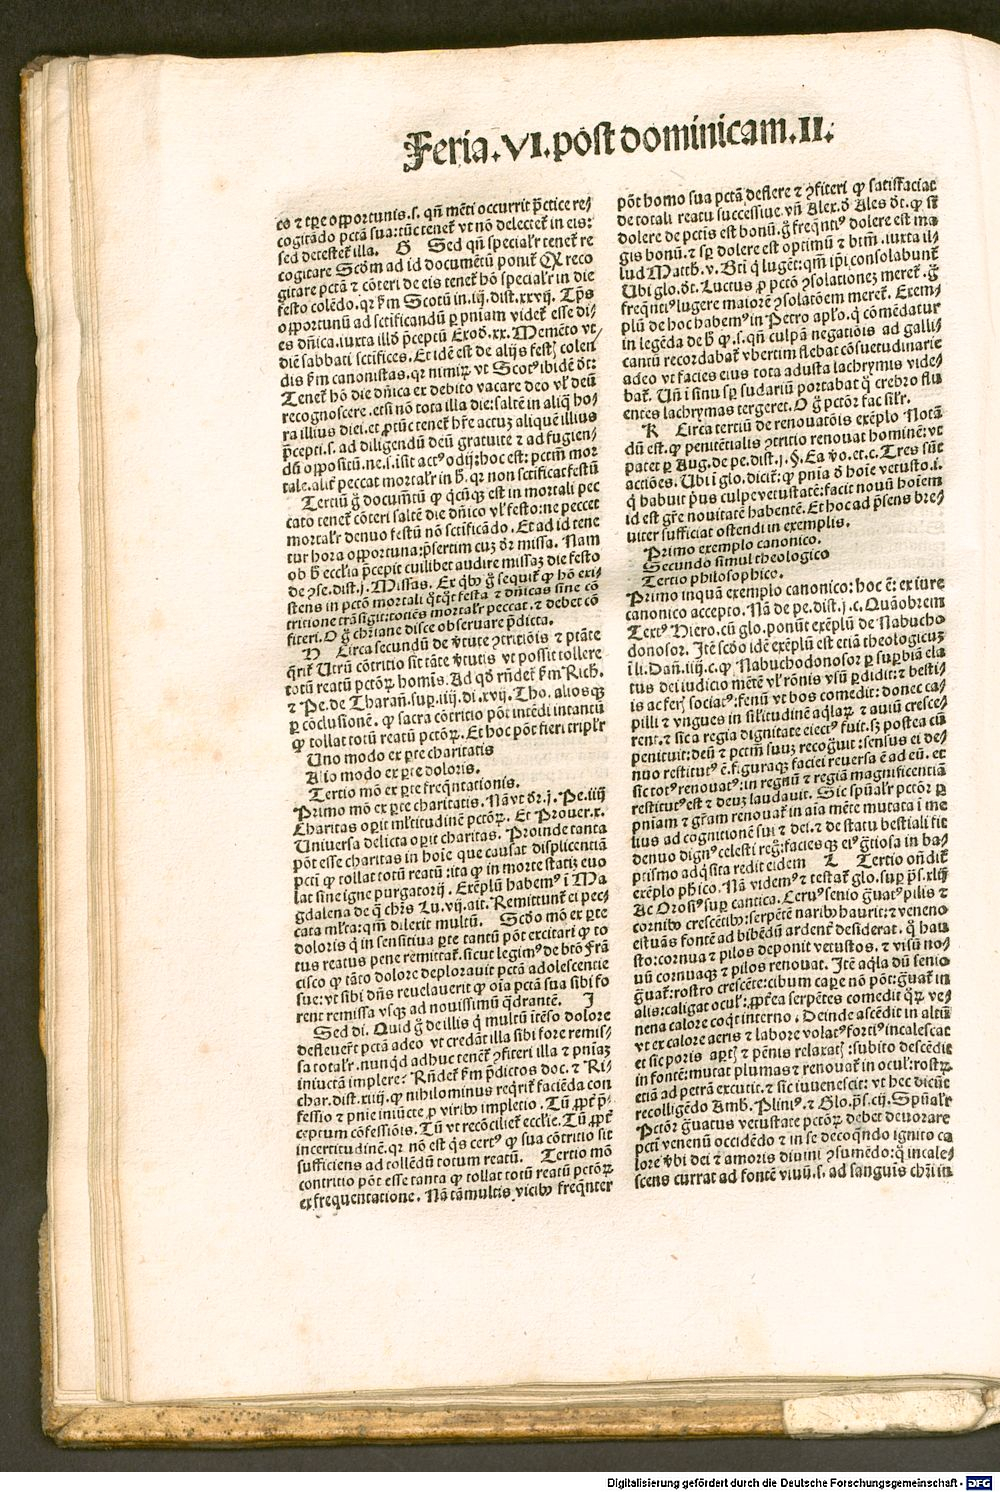 Feria.VI.post dominicam.II.
co ⁊ tꝑe oꝑortunis.s. qñ mẽti occurrit p̃ctice rej
cogitãdo pctã sua: tũc tenet̃ vt nõ delectet̃ in eis:
sed detestet̃ illa. G Sed qñ specialr̃ tenet̃ re
cogitare Scõm ad id documẽtũ ponit̃ reco
gitare pctã ⁊ cõteri de eis tenet̃ hõ specialr̃ in die
festo colẽdo. qꝛ ẞm Scotũ in .iij. dist. xxvij. Tp̃s
oꝑortunũ ad sctificandũ ꝑ pniam videt̃ esse di⸗
es dñica. iuxta illđ p̃ceptũ Exođ. xx. Memẽto vt⸗
diẽ sabbati sctifices. Et idẽ est de alijs fest; colen⸗
dis ẞm canonistas. qꝛ nimiꝝ vt Scotꝰ ibidẽ đt:
Tenet̃ hõ die dñica ex debito vacare deo vl̃ deũ
recognoscere. etsi nõ tota illa die: saltẽ in aliq̃ ho⸗
ra illius diei. et ꝓ tũc tenet̃ hr̃e actuz aliquẽ illius
p̃cepti. s. ad diligendũ deũ gratuite ⁊ ad fugien⸗
dũ oꝑositũ. ne .s. i sit actꝰ odij: hoc est: pctm̃ mor
tale. alit̃ peccat mortalr̃ in ħ. qꝛ non sctificat festũ
Tertiũ g̃ documẽtũ ꝙ q̃cũqꝫ est in mortali pec
cato tenet̃ cõteri saltẽ die dñico vl̃ festo: ne peccet
mortalr̃ denuo festũ nõ sctificãdo. Et ad id tene
tur hora oꝑortuna: p̃sertim cuz đr missa. Nam
ob ħ ecclia p̃cepit cuilibet audire missaz die festo
de ꝯse. dist. j. Missas. Ex q̃bꝰ g̃ sequit̃ ꝙ hõ exi⸗
stens in pctõ mortali q̃tq̃t festa ⁊ dñicas sine cõ
tritione trãsigit: totiẽs mortalr̃ peccat. ⁊ debet cõ
fiteri. O g̃ chr̃iane disce obseruare p̃dicta.
H Circa secundũ de v̓tute ꝯtritiõis ⁊ ptãte
q̃rit̃ Utrũ cõtritio sit tãte v̓tutis vt possit tollere
totũ reatũ pctõꝝ homĩs. Ad qđ rñdet̃ ẞm Rich.
⁊ Pe. de Tharañ. suꝑ. iiij. di. xvij. Tho. aliosqꝫ
ꝑ cõclusionẽ. ꝙ sacra cõtritio põt intẽdi intantũ
ꝙ tollat totũ reatũ pctõꝝ. Et hoc põt fieri triplr̃
Uno modo ex ꝑte charitatis
Alio modo ex ꝑte doloris.
Tertio mõ ex ꝑte freq̃ntationis.
Primo mõ ex ꝑte charitatis. Nã vt đr. j. Pe. iiij
Charitas oꝑit ml̃titudinẽ pctõꝝ. Et Prouer. x.
Uniuersa delicta oꝑit charitas. Proinde tanta
põt esse charitas in hoĩe que causat displicentiã
pcti ꝙ tollat totũ reatũ: ita ꝙ in morte statiz euo
lat sine igne purgatorij. Exẽplũ habemꝰ ĩ Ma
gdalena de q̃ chr̃s Lu. vij. ait. Remittunt̃ ei pec⸗
cata ml̃ta: qm̃ dilexit multũ. Scđo mõ ex ꝑte
doloris q̓ in sensitiua ꝑte tantũ põt excitari ꝙ to
tus reatus pene remittat̃. sicut legimꝰ de btõ Frã
cisco ꝙ tãto dolore deplorauit pctã adolescentie
sue: vt sibi dñs reuelauerit ꝙ oĩa pctã sua sibi fo
rent remissa vsqꝫ ad nouissimũ q̃drantẽ. I
Sed di. Quid g̃ de illis q̓ multũ itẽso dolore
defleuer̃t pctã adeo vt credãt illa sibi fore remis⸗
sa totalr̃. nunqđ adhuc tenet̃ ꝯfiteri illa ⁊ pniaz
iniuctã implere? Rñdet̃ ẞm p̃dictos doc. ⁊ Ri⸗
char. dist. xiiij. ꝙ nihilominus req̓rit̃ faciẽda con
fessio ⁊ pnie iniũcte ꝓ viribꝰ impletio. Tũ ꝓpt̃ p̃⸗
ceptum cõfessiõis. Tũ vt recõcilief̃ ecclie. Tũ ꝓpt̃
incertitudinẽ. qꝛ nõ est q̓s certꝰ ꝙ sua cõtritio sit
sufficiens ad tollẽdũ totum reatũ. Tertio mõ
contritio põt esse tanta ꝙ tollat totũ reatũ pctõꝝ
ex frequentatione. Nã tã multis vicibꝰ freq̃nter
põt homo sua pctã deflere ⁊ ꝯfiteri ꝙ satisfaciat
de totali reatu successiue. vñ Alex. đ Ales đt. ꝙ si
dolere de pctis est bonũ. g̃ freq̃ntiꝰ dolere est ma
gis bonũ. ⁊ sꝑ dolere est optimũ ⁊ btm̃. iuxta il⸗
lud Matth. v. Bti q̓ lugẽt: qm̃ ip̃i consolabunt̃
Ubi glo. đt. Luctus ꝓ pctõ ꝯsolationez meret̃. g̃
freq̃ntiꝰ lugere maiorẽ ꝯsolatõem meret̃. Exem⸗
plũ de hoc habemꝰ in Petro apl̃o. q̓ cõmẽdatur
in legẽda de ħ ꝙ .s. qñ culpã negatiõis ad galli⸗
cantũ recordabat̃ vbertim flebat cõsuetudinarie
adeo vt facies eius tota adusta lachrymis vide⸗
bat̃. Uñ i sinu sꝑ sudariũ portabat q̓ crebro flu
entes lachrymas tergeret. O g̃ pctõr fac sil̃r.
K Circa tertiũ de renouatõis exẽplo Notã
dũ est. ꝙ penitẽtialis ꝯtritio renouat hominẽ: vt
patet ꝑ Aug. de pe. dist. j. §. Ea v̓o. et. c. Tres sũt
actiões. Ubi ĩ glo. dicit̃: ꝙ pnĩa đ hoĩe vetusto .i.
q̓ habuit p̓us culpe vetustatẽ: facit nouũ hoĩem
id est gr̃e nouitatẽ habentẽ. Et hoc ad p̃sens bre⸗
uiter sufficiat ostendi in exemplis.
Primo exemplo canonico.
Secundo simul theologico
Tertio philosophico.
Primo inquã exemplo canonico: hoc ẽ: ex iure
canonico accepto. Nã de pe. dist. j. c. Quãobrem
Textꝰ Hiero. cũ glo. ponũt exẽplũ de Nabucho
donosor. Itẽ scđo idẽ exẽplũ est etiã theologicuz
ĩ li. Dañ. iiij. c. ꝙ Nabuchodonosor ꝑ suꝑbiã ela
tus dei iudicio mẽtẽ vl̃ rõnis vsũ ꝑdidit: ⁊ besti⸗
is ac fer; sociatꝰ: fenũ vt bos comedit: donec ca⸗
pilli ⁊ vngues in sil̃itudinẽ aq̃laꝝ ⁊ auiũ cresce⸗
rent. ⁊ sic a regia dignitate eiectꝰ fuit. sꝫ postea cũ
penituit: deũ ⁊ pctm̃ suuz recog̃uit: sensus ei de⸗
nuo restitutꝰ ẽ. figuraqꝫ faciei reuersa ẽ ad eũ. et
sic totꝰ renouatꝰ: in regnũ ⁊ regiã magnificentiã
restitutꝰ est ⁊ deuz laudauit. Sic sp̃ualr̃ pctõr ꝑ
pniam ⁊ gr̃am renouat̃ in aĩa mẽte mutata ĩ me
lius ad cognitionẽ sui ⁊ dei. ⁊ de statu bestiali fit
denuo dignꝰ celesti reg̃: faciesqꝫ eiꝰ g̃tiosa in ba⸗
ptismo adq̓sita redit eidem L Tertio oñdit̃
exẽplo ph̓ico. Nã videmꝰ ⁊ testat̃ glo. suꝑ p̃s. xlij
Ac Orosiꝰ suꝑ cantica. Ceruꝰ senio g̃uatꝰ pilis ⁊
cornibꝰ crescẽtibꝰ: serpẽtẽ naribꝰ haurit: ⁊ veneno
estuãs fontẽ ad bibẽdũ ardent̃ desiderat. q̓ hau
sto: cornua ⁊ pilos deponit vetustos. ⁊ visũ no⸗
uũ cornuaqꝫ ⁊ pilos renouat. Itẽ aq̃la dũ senio
g̃uat̃: rostro crescẽte: cibum caꝑe nõ põt: g̃uat̃ in
alis: caligat oculꝭ: ꝓpt̃ea serpẽtes comedit q̃ꝝ ve⸗
nena calore coq̓t interno. Deinde ascẽdit in altũ
vt ex calore aeris ⁊ labore volatꝰ fortiꝰ incalescat
et sic poris apt; ⁊ pẽnis relaxat;: subito descẽdit
in fontẽ: mutat plumas ⁊ renouat̃ in oculꝭ: rostꝝ
etiã ad petrã excutit. ⁊ sic iuuenescit: vt hec dicũt
recolligẽdo Amb. Pliniꝰ. ⁊ Glo. p̃s. cij. Sp̃ualr̃
Pctõr g̃uatus vetustate pctõꝝ debet deuorare
pcti venenũ occidẽdo ⁊ in se decoq̃ndo ignito ca
lore v̓bi dei ⁊ amoris diuini ꝯsumẽdo: q̓ incale⸗
scens currat ad fontẽ viuũ .s. ad sanguis chr̃i in
Digitalisierung gefördert durch die Deutsche Forschungsgemeinschaft - DFG